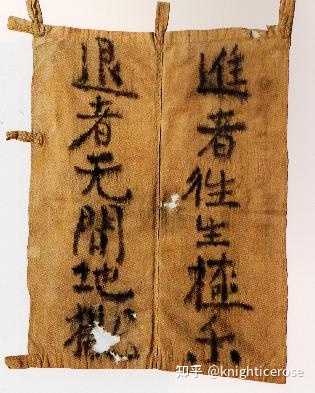 進者往生極乐
退者无間地獄
知乎 @knighticerose